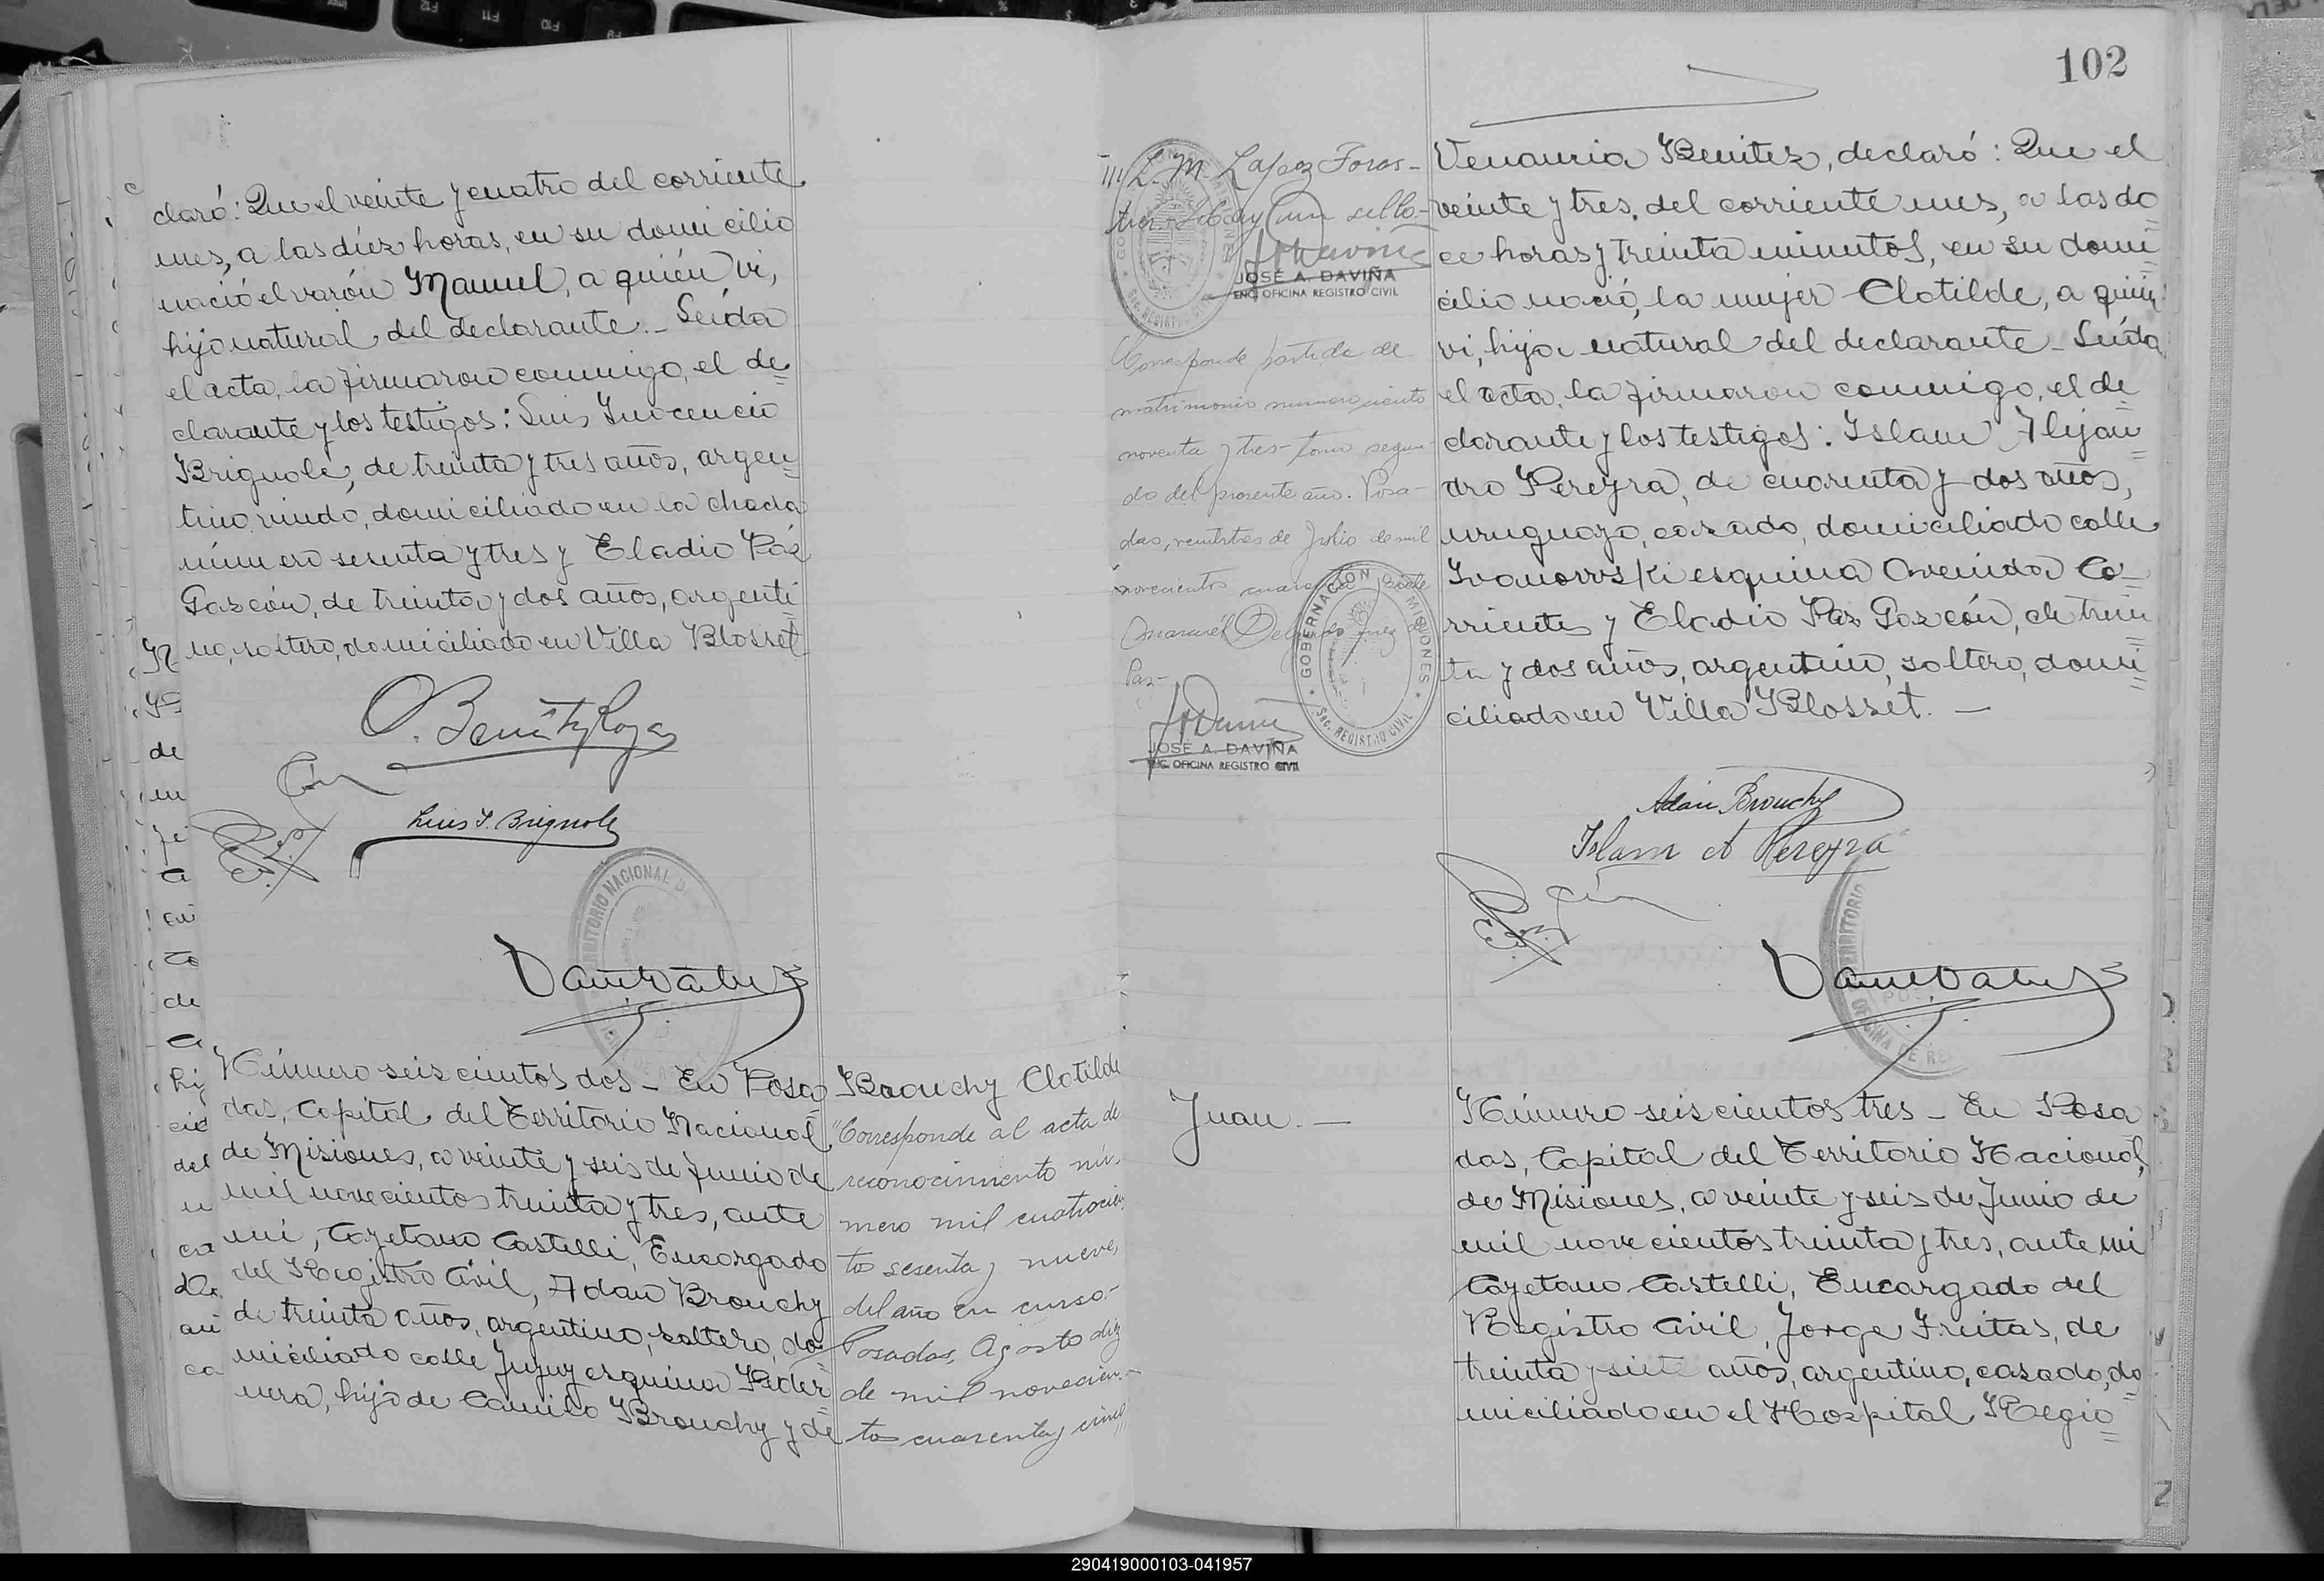 claró: Que el veinte y cuatro del corriente
mes, a las diez horas, en su domicilio
nació el varón Manuel, a quién vi,
hijo natural del declarante._ Leída
el acta, la firmaron conmigo, el de=
clarante y los testigos: Luis Inocencio
Brignole, de treinta y tres años, argen=
tino, viudo, domiciliado en la chacra
número sesenta y tres y Eladio Páz
Gazcón, de treinta y dos años, argenti=
no, soltero, domiciliado en Villa Blosset
O. Benitez Rojas
Luis I. Brignole
TERRITORIO NACIONAL DE
Número seiscientos dos _ En Posa=
das, Capital del Territorio Nacional
de Misiones, a veinte y seis de Junio de
mil novecientos treinta y tres, ante
mi, Cayetano Castelli, Encargado
del Registro Civil, Adan Brouchy
de treinta años, argentino, soltero, do=
miciliado calle Jujuy esquina Peder=
nera, hijo de Camilo Brouchy y de
Brouchy Clotilde
"Corresponde al acta de
reconocimiento nú-
mero mil cuatrocien-
tos sesenta y nueve,
del año en curso.-
Posadas, Agosto diez
de mil novecien-
tos cuarenta y cinco
///
102
/// L. M. Lapez Foras-
tier. Hay un sello.-
JOSÉ A. DAVIÑA
ENC. OFICINA REGISTRO CIVIL
Corresponde partida de
matrimonio numero ciento
noventa y tres- tomo segun-
do del presente año. Posa-
das, veintitres de Julio de mil
novecientos cuarenta
Manuel Delgado Juez de
Paz-
GOBERNACION MISIONES
SEC. REGISTRO CIVIL
JOSÉ A. DAVIÑA
ENC. OFICINA REGISTRO CIVIL
Venancia Benitez, declaró: Que el
veinte y tres, del corriente mes, a las do=
ce horas y treinta minutos, en su domi=
cilio nació, la mujer Clotilde, a quien
vi, hija natural del declarante _ Leída
el acta, la firmaron conmigo, el de=
clarante y los testigos: Islam Alejan=
dro Pereyra, de cuarenta y dos años,
uruguayo, casado, domiciliado calle
Ivanowski esquina Avenida Co=
rrientes y Eladio Páz Gazcón, de trein=
ta y dos años, argentino, soltero, domi=
ciliado en Villa Blosset. —
Adan Brouchy
Islam A Pereyra
TERRITORIO
OFICINA DE RE
Juan. —
Número seiscientos tres _ En Posa
das, Capital del Territorio Nacional,
de Misiones, a veinte y seis de Junio de
mil novecientos treinta y tres, ante mi
Cayetano Castelli, Encargado del
Registro Civil, Jorge Freitas, de
treinta y siete años, argentino, casado, do=
miciliado en el Hospital Regio=
290419000103-041957